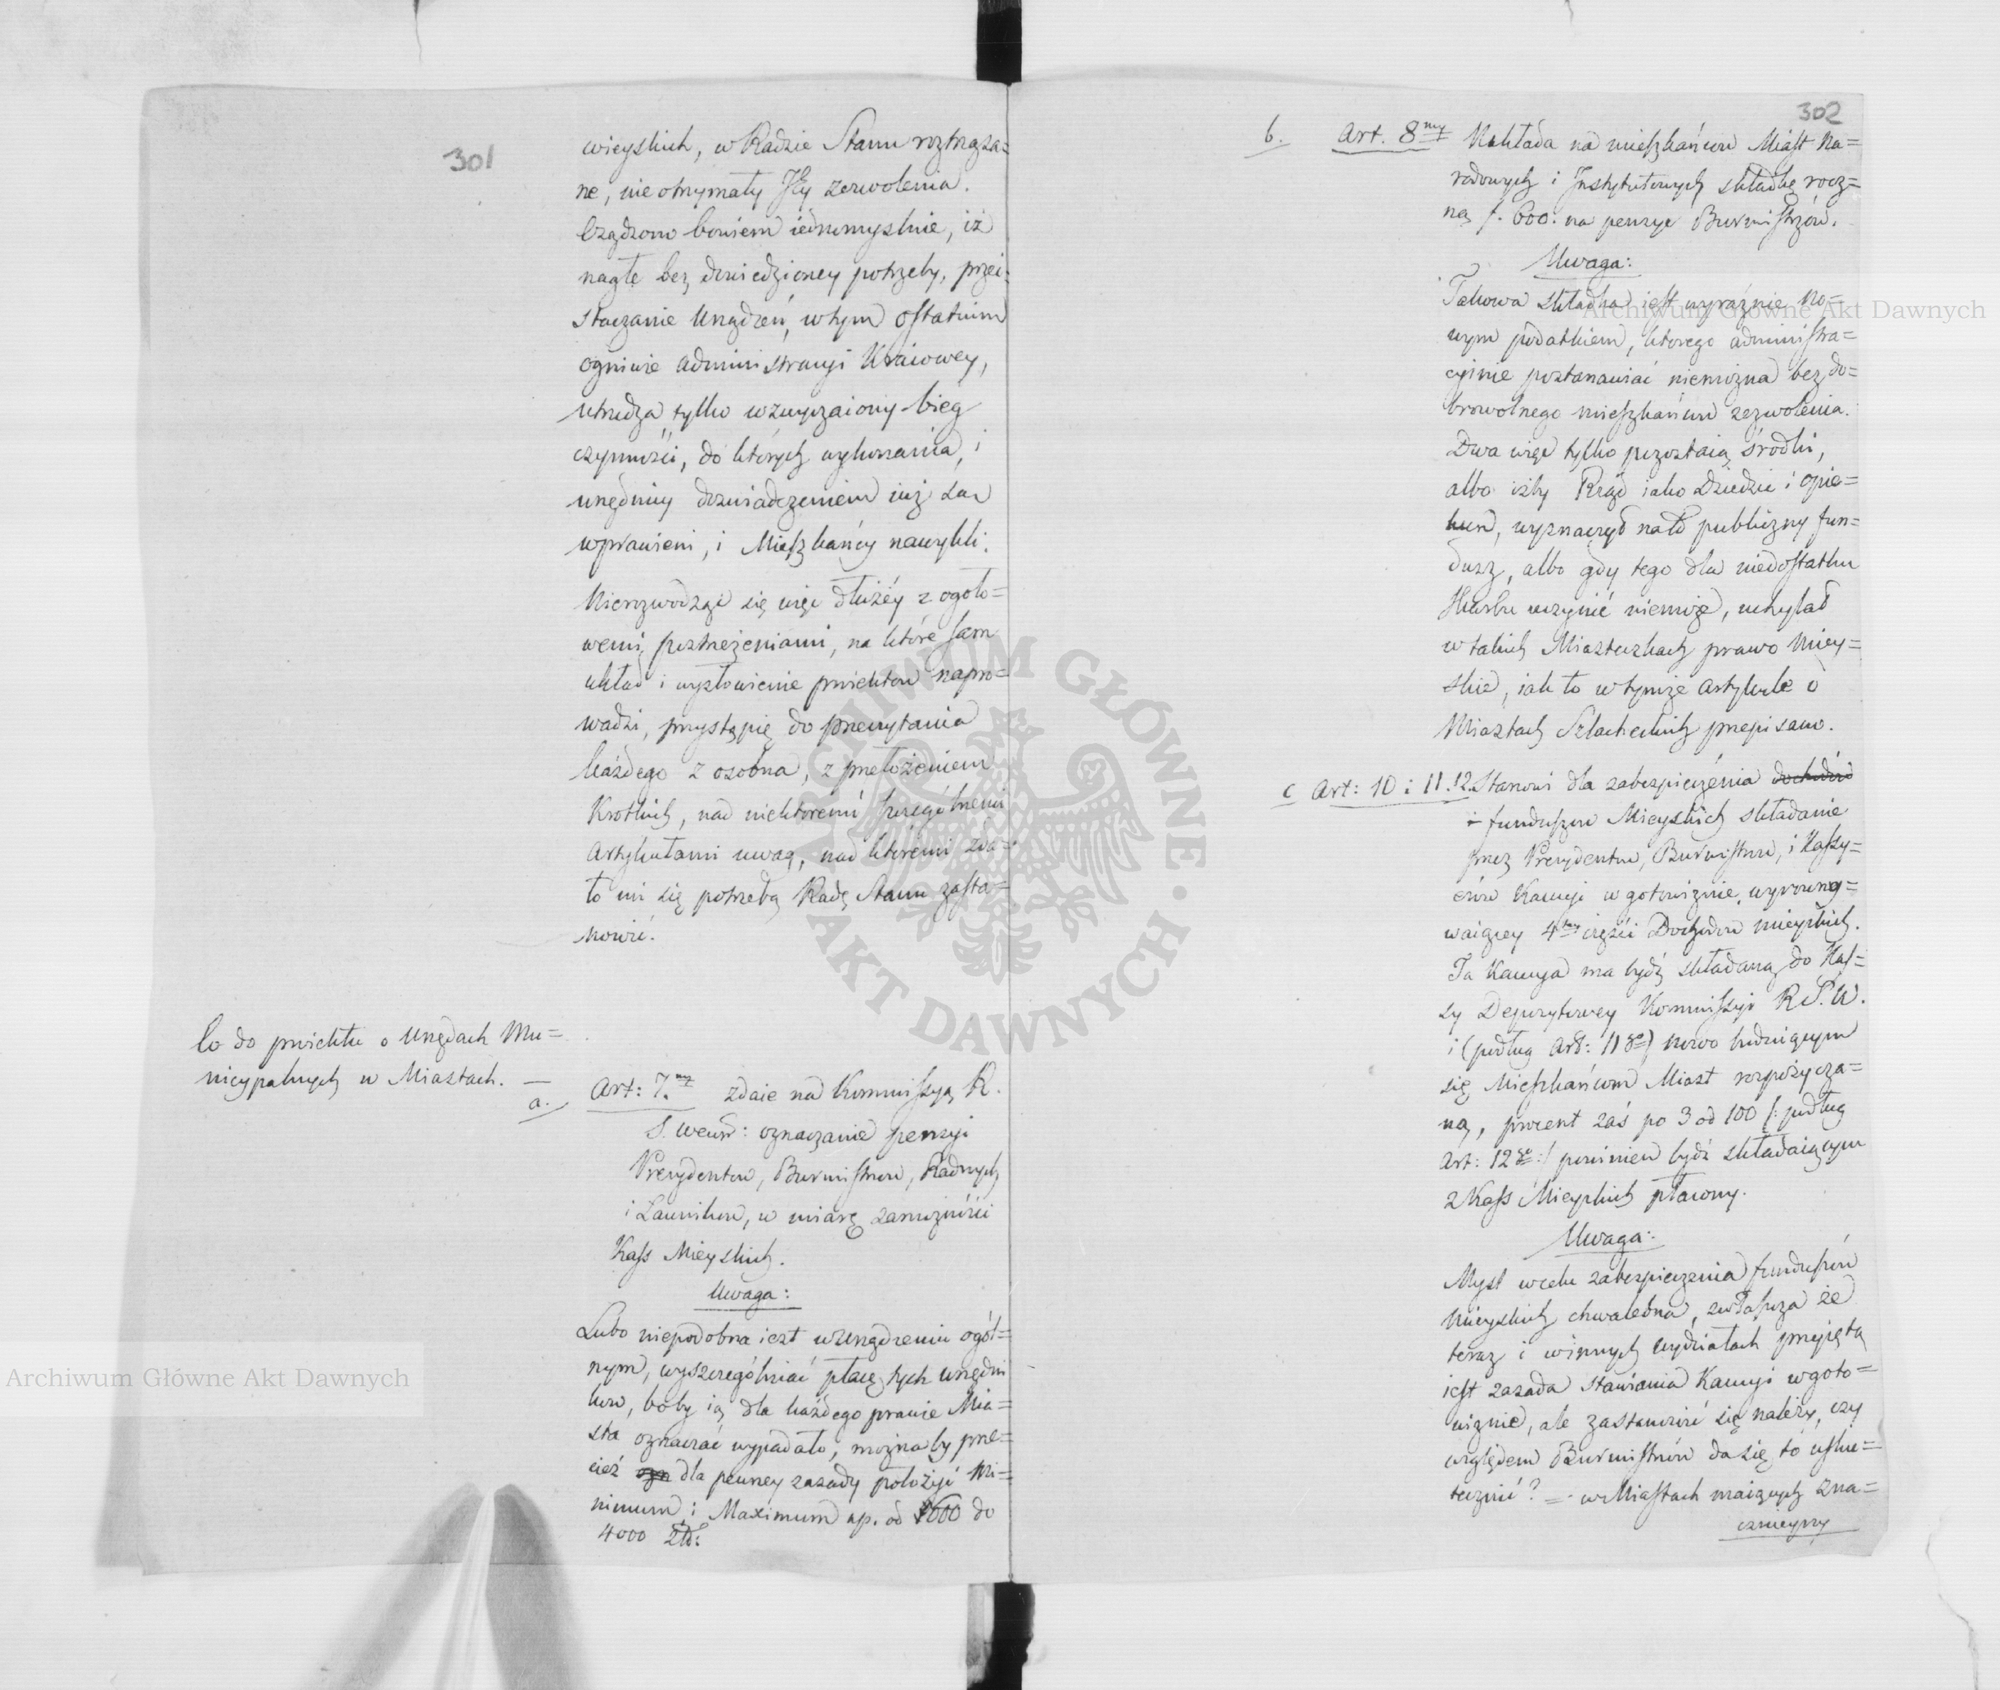 301
wieyskich, w Radzie Stanu roztrząsa=
ne, nie otrzymały Jéy zezwolenia.
Osądzono bowiem iednomyslnie, iż
nagłe bez dowiedzioney potrzeby, prze=
staczanie Urządzeń, w tym ostatnim
ogniwie administracyi Kraiowey,
utrudza tylko wzwyczaiony bieg
czynności, do których wykonania, i
urzędnicy doswiadczeniem iuż są
wprawieni, i Mieszkańcy nawykli.
Nierozwodząc się więc dłużéy z ogóło=
wemi postrzeżeniami, na które sam
układ i wysłowienie proiektów napro=
wadzi, przystąpię do przeczytania
każdego z osobna, z przełożeniem
Krotkich, nad niektóremi szczególnemi
Artykułami uwag, nad któremi zda=
ło mi się potrzebą Radę Stanu zasta=
nowić.
Co do proiektu o Urzędach Mu=
nicypalnych w Miastach. —
a.
Art: 7.my zdaie na Kommissyą R.
S. Wewn: oznaczanie pensyi
Prezydentów, Burmistrzow, Radnych,
i Ławników, w miarę zamożności
Kass Mieyskich.
Uwaga:
Lubo niepodobna iest w Urządzeniu ogól=
nym, wyszczególniać płacę tych urzędni
ków, boby ią dla każdego prawie Mia=
sta oznaczać wypadało, możnaby prze=
cież dla pewney zasady położyć Mi=
nimum i Maximum np. od 600 do
4000 Złł:
302
b. Art. 8my Nakłada na mieszkańców Miast Na=
rodowych i Instytutowych składkę rocz=
ną f. 600. na pensye Burmistrzów.
Uwaga:
Takowa składka iest wyraźnie no=
wym podatkiem, ktorego administra=
cyinie postanawiać niemożna bez do=
browolnego mieszkańców zezwolenia.
Dwa więc tylko pozostaią środki,
albo iżby Rząd iako Dziedzic i opie=
kun, wyznaczył na to publiczny fun=
dusz, albo gdy tego dla niedostatku
Skarbu uczynić niemoże, uchylał
w takich Miasteczkach prawo Miey=
skie, iak to w tymże Artykule o
Miastach Szlacheckich przepisano.
c Art: 10 i 11.12. Stanowi dla zabezpieczenia dochodów
i funduszow Mieyskich składanie
przez Prezydentów, Burmistrzów, i Kassy=
erów Kaucyi w gotowiznie, wyrowny=
waiącey 4tey części Dochodów mieyskich.
Ta Kaucya ma bydź składaną do Kas=
sy Depozytowey Kommissyi R.S.W.
i (podług Art: 11go) nowo buduiącym
się Mieszkańcom Miast rozpożycza=
ną, procent zaś po 3 od 100 /: podług
Art: 12go :/ powinien bydź składaiącym
z Kass Mieyskich płacony.
Uwaga:
Mysl w celu zabezpieczenia funduszów
Mieyskich chwalebna, zwłaszcza że
teraz i w innych wydziałach przyięta
iest zasada stawiania Kaucyi w goto=
wiznie, ale zastanowić się należy, czy
względem Burmistrzów da się to usku=
tecznić? — w Miastach maiących zna=
cznieyszy